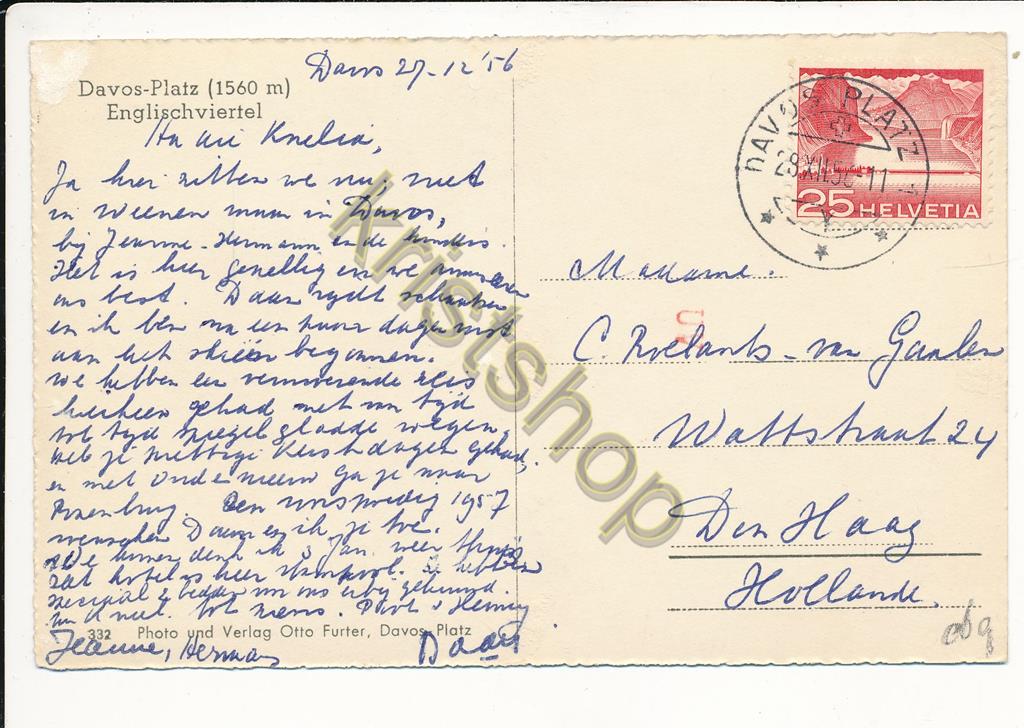 Davos 27-12 '56
Davos-Platz (1560 m)
Englischviertel
Ja hier zitten we nu, niet
in Weenen maar in Davos,
bij Jeanne-Hermann en de kinders.
Het is hier gezellig en we amuseren
ons best. Daan rijdt schaatsen
en ik ben na een paar dagen rust
aan het skiën begonnen.
We hebben een vermoeiende reis
hierheen gehad met van tijd
tot tijd spiegel gladde wegen.
Heb je prettige Kerstdagen gehad,
en met Oud en nieuw ga je naar
Een voorspoedig 1957
wenschen Daan en ik je toe.
We komen denk ik 3 Jan. weer thuis
Het hotel is hier
2 bedden
tot ziens.
Jeanne, Herman
Daan
332 Photo und Verlag Otto Furter, Davos-Platz
DAVOS PLATZ
28.XII.56-11
25 HELVETIA
Madame.
C. Roelants-van Gaalen
Wattstraat 24
Den Haag
Hollande.
Kristshop